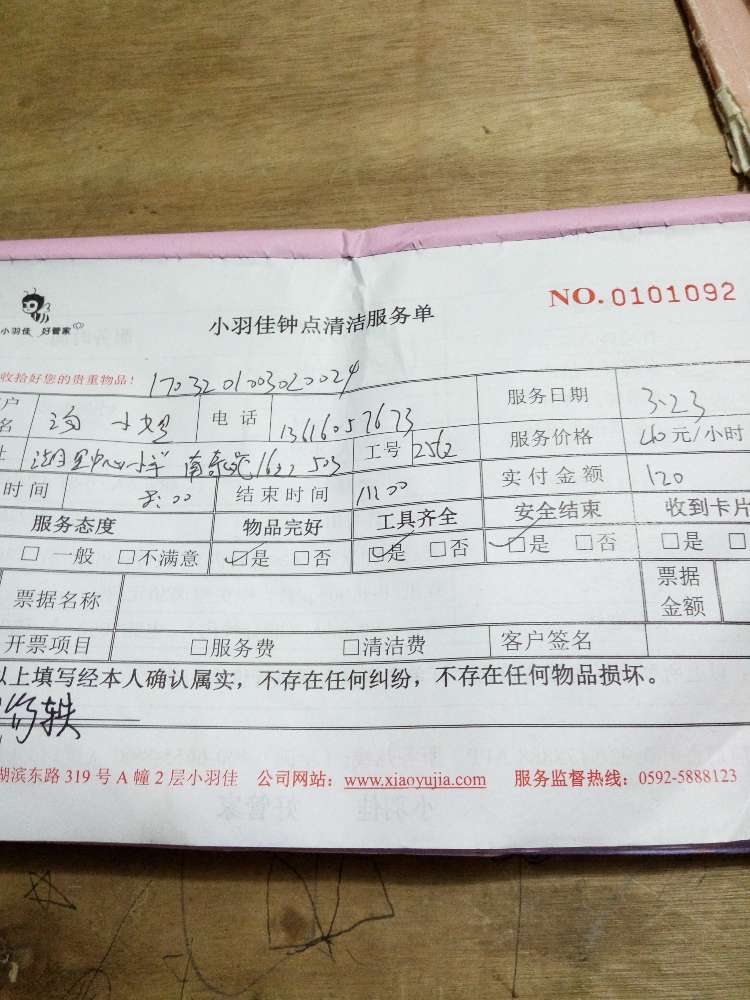 小羽佳 好管家
小羽佳钟点清洁服务单
NO.0101092
收拾好您的贵重物品! 1703201003020024
户名 小姐 电话 13616057673 服务日期 3.23
中心小学 503 工号 2562 服务价格 40元/小时
时间 8:00 结束时间 11:00 实付金额 120
服务态度 物品完好 工具齐全 安全结束 收到卡片
□一般 □不满意 ☑是 □否 ☑是 □否 ☑是 □否 □是 □
票据名称 票据金额
开票项目 □服务费 □清洁费 客户签名
以上填写经本人确认属实，不存在任何纠纷，不存在任何物品损坏。
湖滨东路 319 号 A 幢 2 层小羽佳 公司网站：www.xiaoyujia.com 服务监督热线：0592-5888123